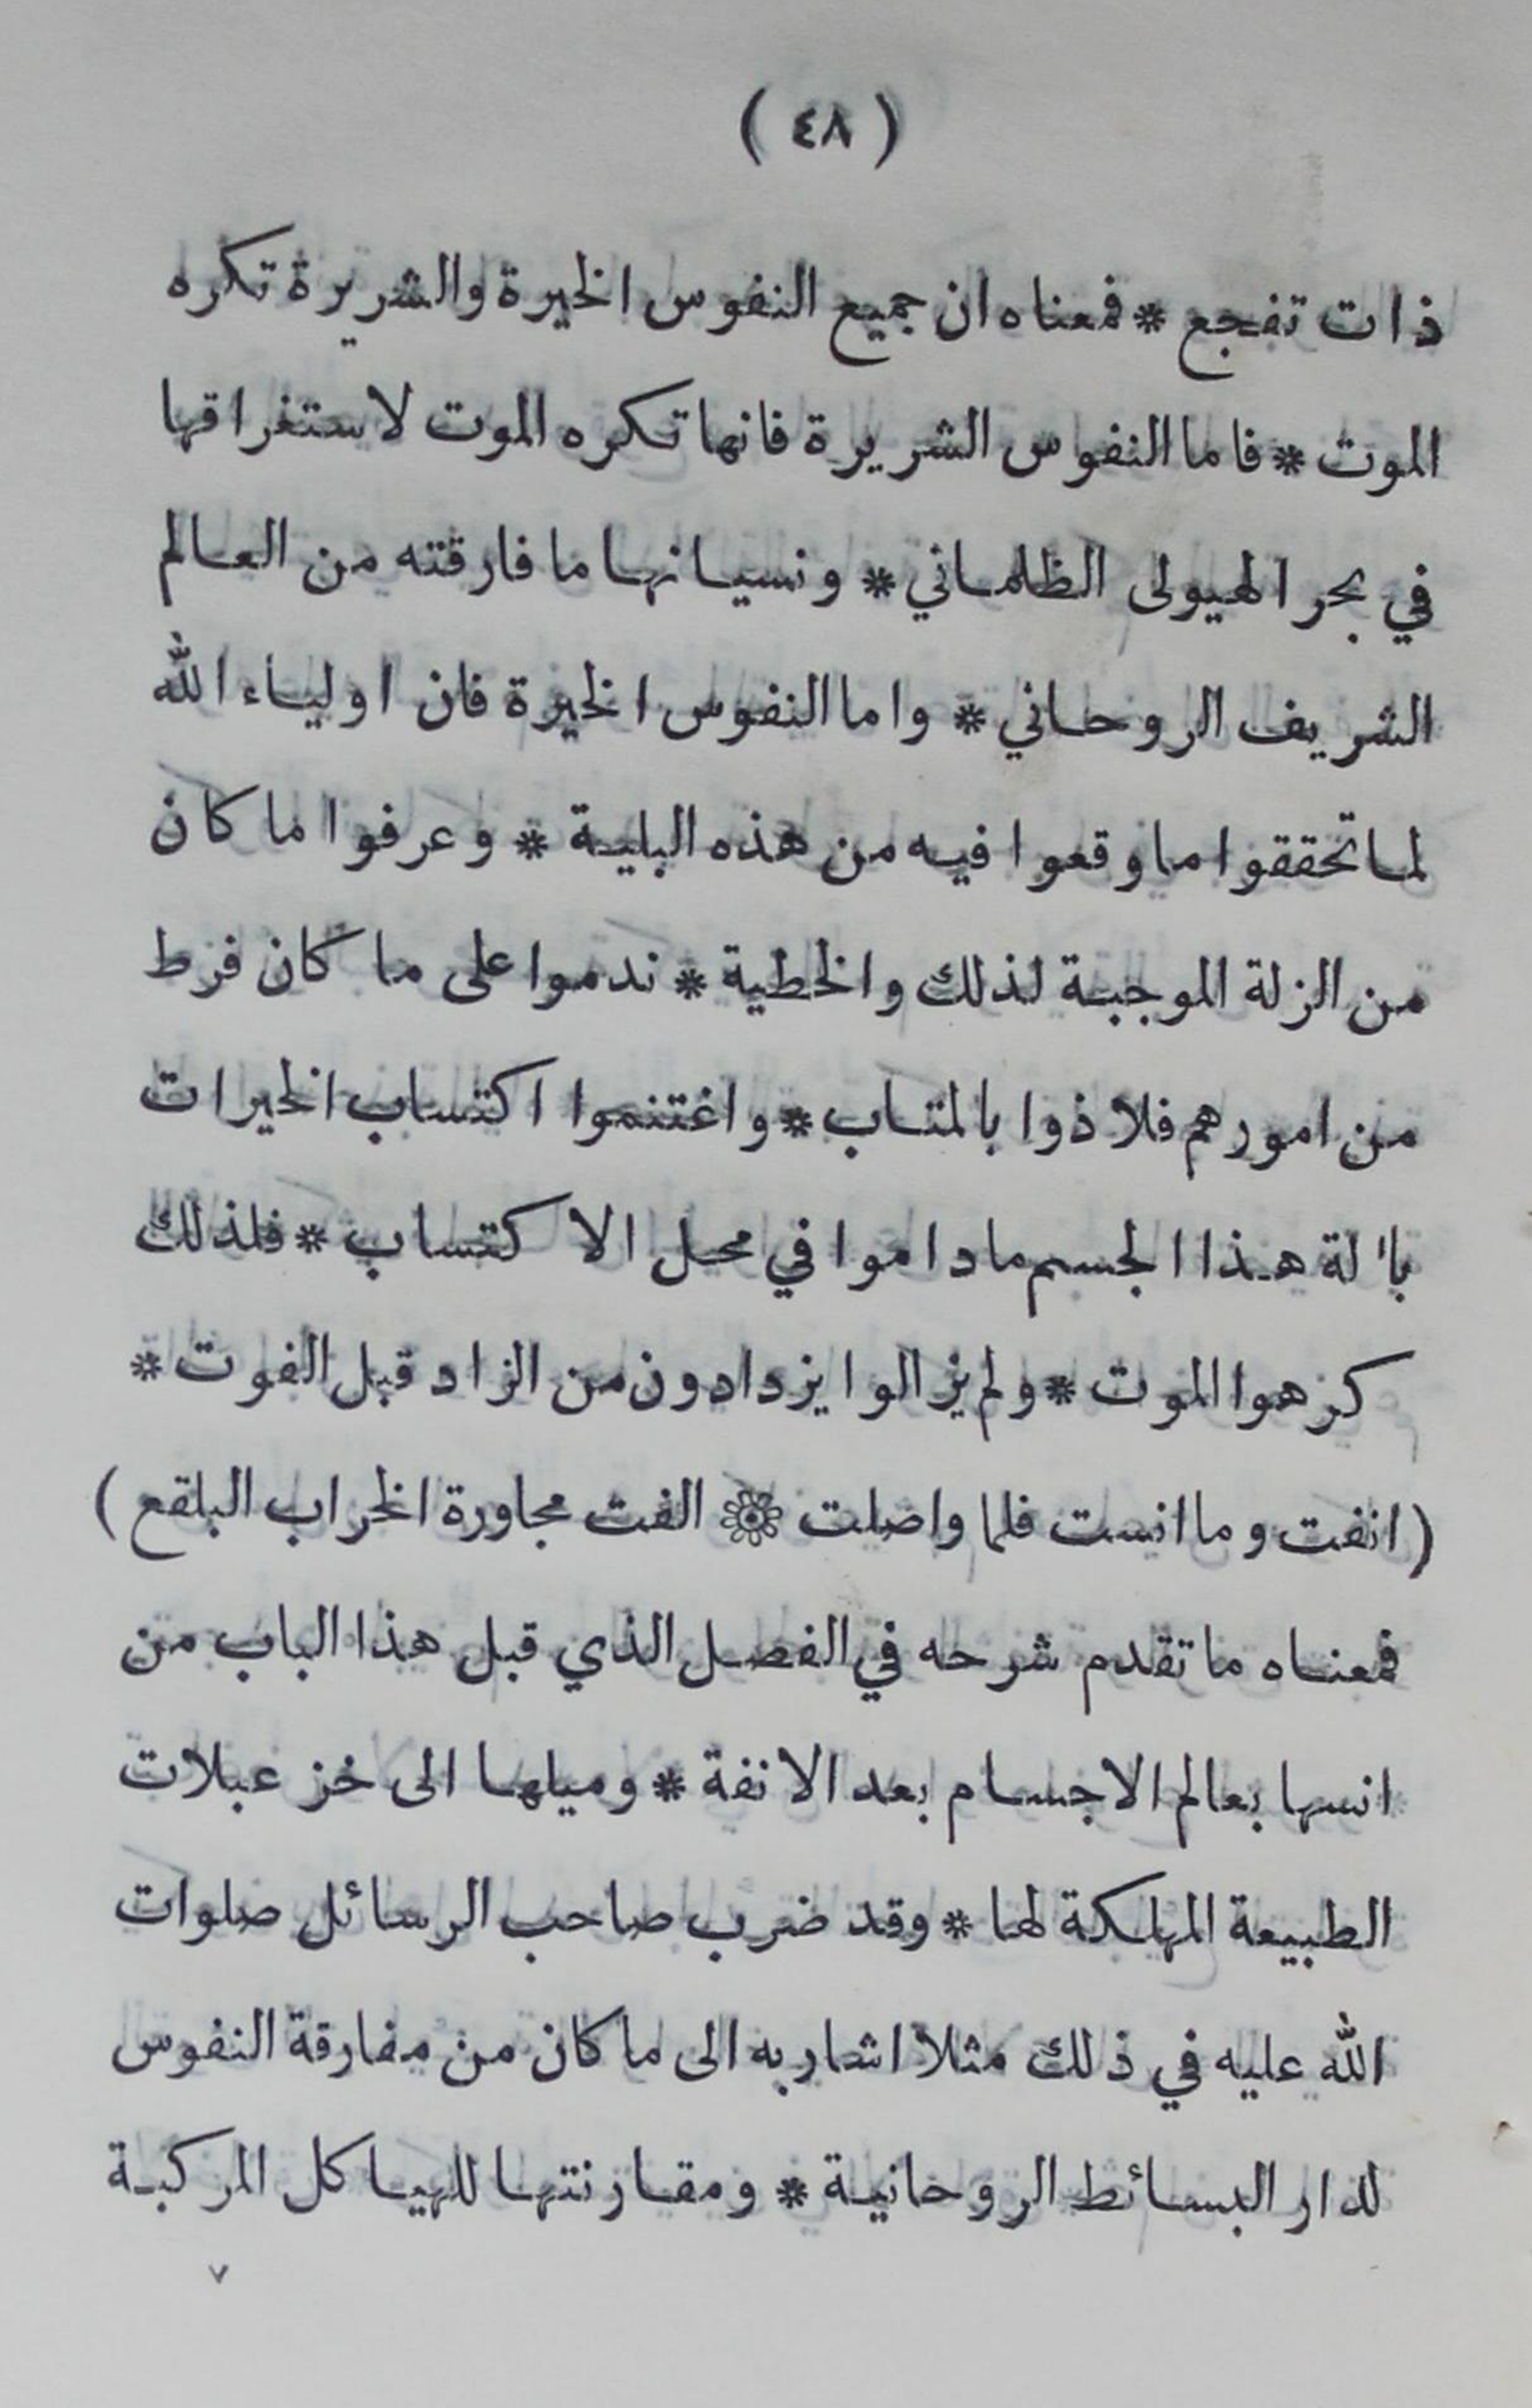 ( ٤٨ )
ذات تفجع * فمعناه ان جميع النفوس الخيرة والشريرة تكره
الموت * فاما النفوس الشريرة فانها تكره الموت لاستغراقها
في بحر الهيولى الظلماني * ونسيانها ما فارقته من العالم
الشريف الروحاني * واما النفوس الخيرة فان اولياء الله
لما تحققوا ما وقعوا فيه من هذه البلية * وعرفوا ما كان
من الزلة الموجبة لذلك والخطية * ندموا على ما كان فرط
من امورهم فلاذوا بالمتاب * واغتنموا اكتساب الخيرات
بآلة هذا الجسم ماداموا في محل الاكتساب * فلذلك
كرهوا الموت * ولم يزالوا يزدادون من الزاد قبل الفوت *
( انفت وما انست فلما واصلت ۞ الفت مجاورة الخراب البلقع )
فمعناه ما تقدم شرحه في الفصل الذي قبل هذا الباب من
انسها بعالم الاجسام بعد الانفة * وميلها الى خزعبلات
الطبيعة المهلكة لها * وقد ضرب صاحب الرسائل صلوات
الله عليه في ذلك مثلا اشار به الى ما كان من مفارقة النفوس
لدار البسائط الروحانية * ومقارنتها للهياكل المركبة
٧